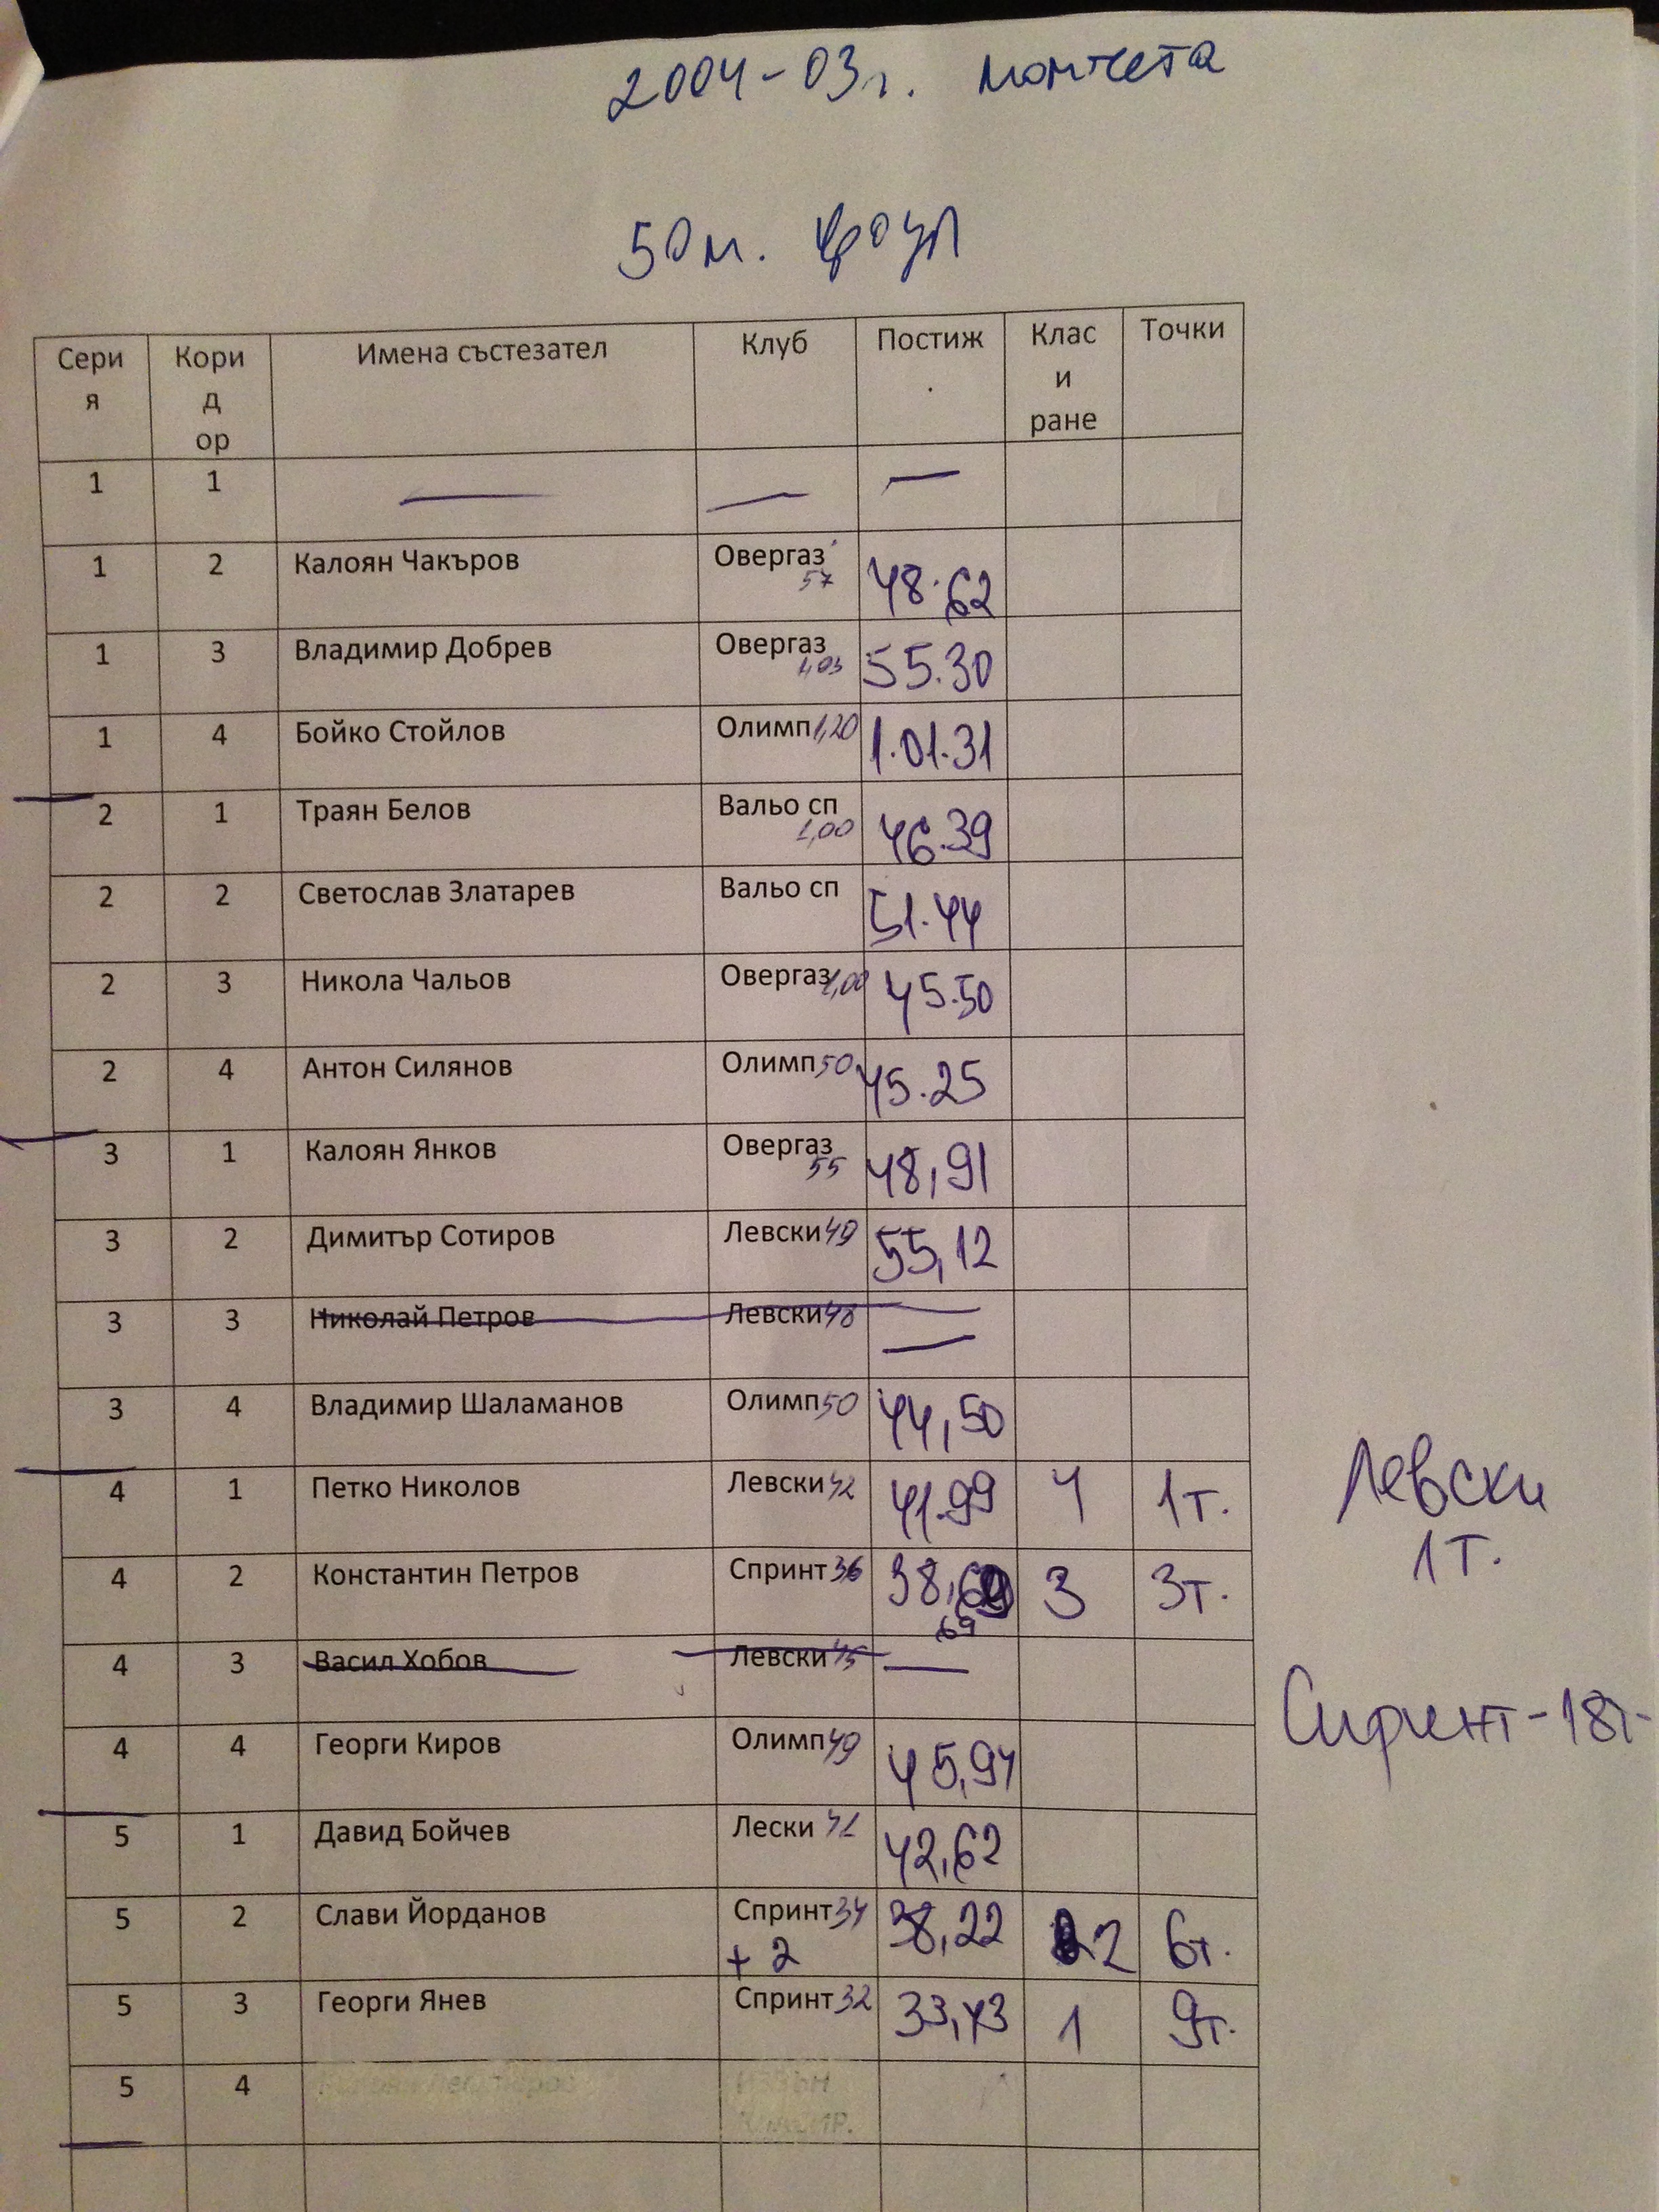 2004-03г. момчета
50м. кроул
Сери
я
Кори
д
ор
Имена състезател
Клуб
Постиж
.
Клас
и
ране
Точки
1 1 — — —
1 2 Калоян Чакъров Овергаз 57 48.62
1 3 Владимир Добрев Овергаз 1,03 55.30
1 4 Бойко Стойлов Олимп 1,20 1.01.31
2 1 Траян Белов Вальо сп 1,00 46.39
2 2 Светослав Златарев Вальо сп 51.44
2 3 Никола Чальов Овергаз 1,00 45.50
2 4 Антон Силянов Олимп 50 45.25
3 1 Калоян Янков Овергаз 55 48,91
3 2 Димитър Сотиров Левски 49 55,12
3 3 Николай Петров Левски 48 —
3 4 Владимир Шаламанов Олимп 50 44,50
4 1 Петко Николов Левски 42 41.99 4 1т.
Левски
1т.
4 2 Константин Петров Спринт 36 38,69 3 3т.
69
4 3 Васил Хобов Левски 45 —
4 4 Георги Киров Олимп 49 45,94
Спринт - 18т.
5 1 Давид Бойчев Лески 42,62
5 2 Слави Йорданов Спринт 34 38,22 2 6т.
+ 2
5 3 Георги Янев Спринт 32 33,43 1 9т.
5 4